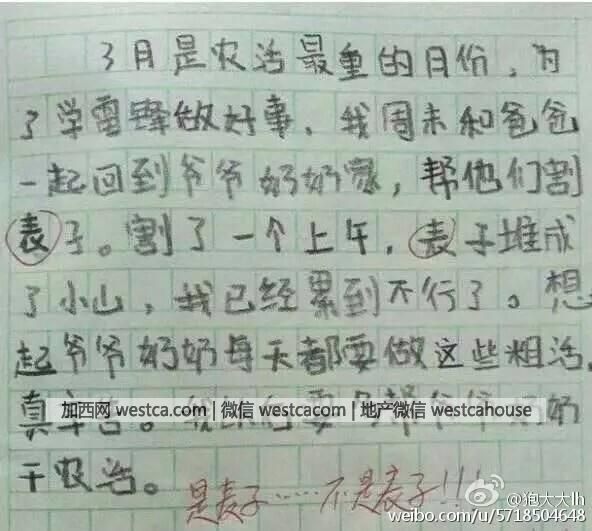 3月是农活最重的月份，为
了学雷锋做好事，我周末和爸爸
一起回到爷爷奶奶家，帮他们割
表子。割了一个上午，表子堆成
了小山，我已经累到不行了。想
起爷爷奶奶每天都要做这些粗活，
真辛苦。我 要 帮爷爷奶奶
加西网 westca.com | 微信 westcacom | 地产微信 westcahouse
干农活。
是麦子……不是表子!!!
@狍大大lh
weibo.com/u/5718504648